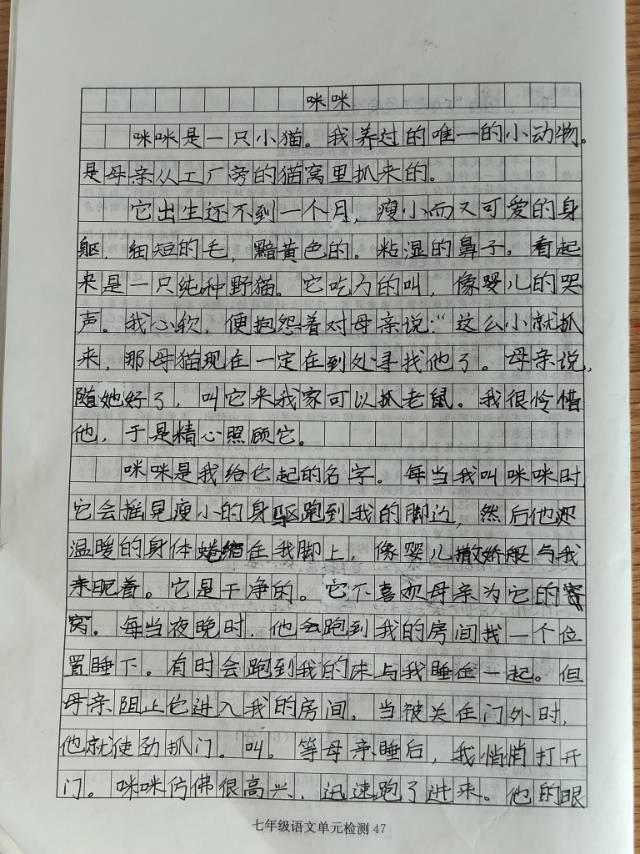 咪咪
咪咪是一只小猫。我养过的唯一的小动物。
是母亲从工厂旁的猫窝里抓来的。
它出生还不到一个月，瘦小而又可爱的身
躯，细短的毛，黯黄色的。粘湿的鼻子，看起
来是一只纯种野猫。它吃力的叫，像婴儿的哭
声。我心软，便抱怨着对母亲说：“这么小就抓
来，那母猫现在一定在到处寻找他了。母亲说，
随她好了，叫它来我家可以抓老鼠。我很怜惜
他，于是精心照顾它。
咪咪是我给它起的名字。每当我叫咪咪时，
它会摇晃瘦小的身躯跑到我的脚边，然后他把
温暖的身体蜷缩在我脚上，像婴儿撒娇般与我
亲昵着。它是干净的。它不喜欢母亲为它的
窝。每当夜晚时，他会跑到我的房间找一个位
置睡下。有时会跑到我的床与我睡在一起。但
母亲阻止它进入我的房间，当被关在门外时，
他就使劲抓门。叫。等母亲睡后，我悄悄打开
门。咪咪仿佛很高兴，迅速跑了进来。他的眼
七年级语文单元检测 47